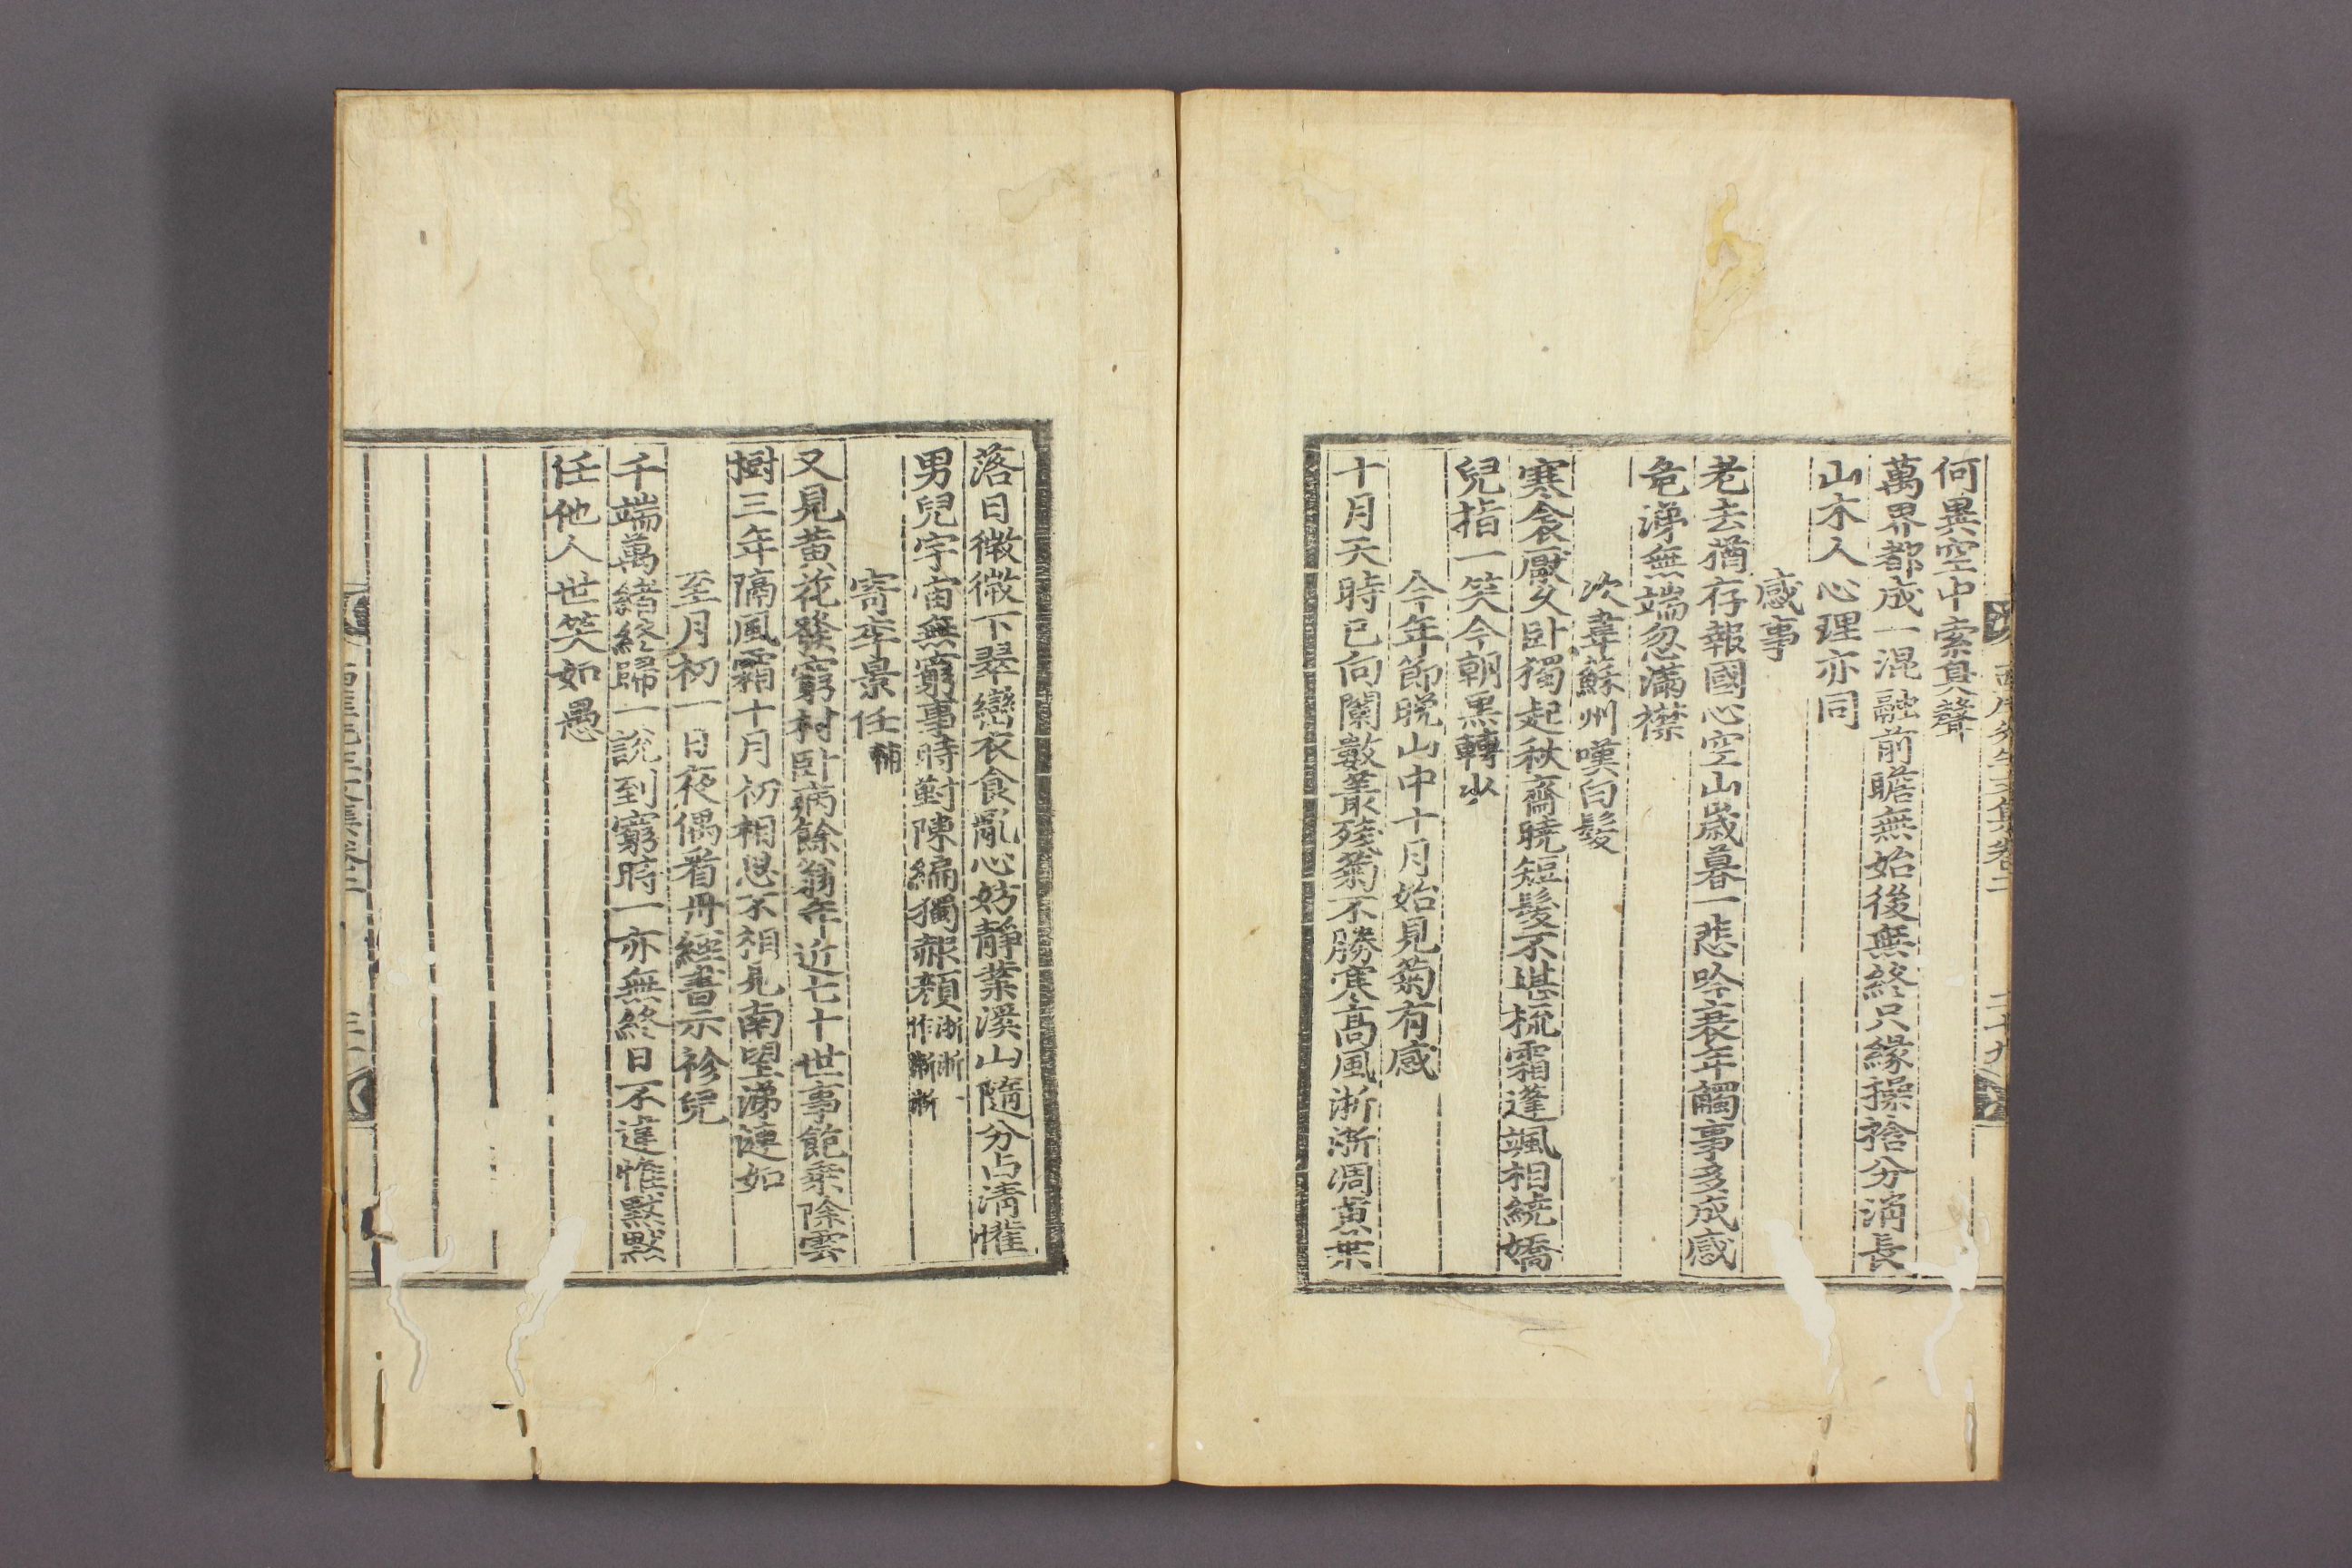 何異空中索臭聲
萬界都成一混融前瞻無始後無終只緣操捨分消長
山木人心理亦同
感事
老去猶存報國心空山歲暮一悲吟衰年觸事多成感
危涕無端忽滿襟
次韋蘇州嘆白髮
寒衾厭久卧獨起秋齋曉短髮不堪梳霜蓬颯相繞嬌
兒指一笑今朝黑轉少
今年節晚山中十月始見菊有感
十月天時已向闌數叢殘菊不勝寒高風淅淅凋黃葉
落日微微下翠巒衣食亂心妨靜業溪山隨分占淸懽
男兒宇宙無窮事時對陳編獨赧顏淅淅
作漸漸
寄李景任補
又見黃花發窮村卧病餘翁年近七十世事飽乘除雲
樹三年隔風霜十月初相思不相見南望涕漣如
至月初一日夜偶看丹經書示袗兒
千端萬緖終歸一說到窮時一亦無終日不違惟黙黙
任他人世笑如愚
二十九
西厓先生文集卷二